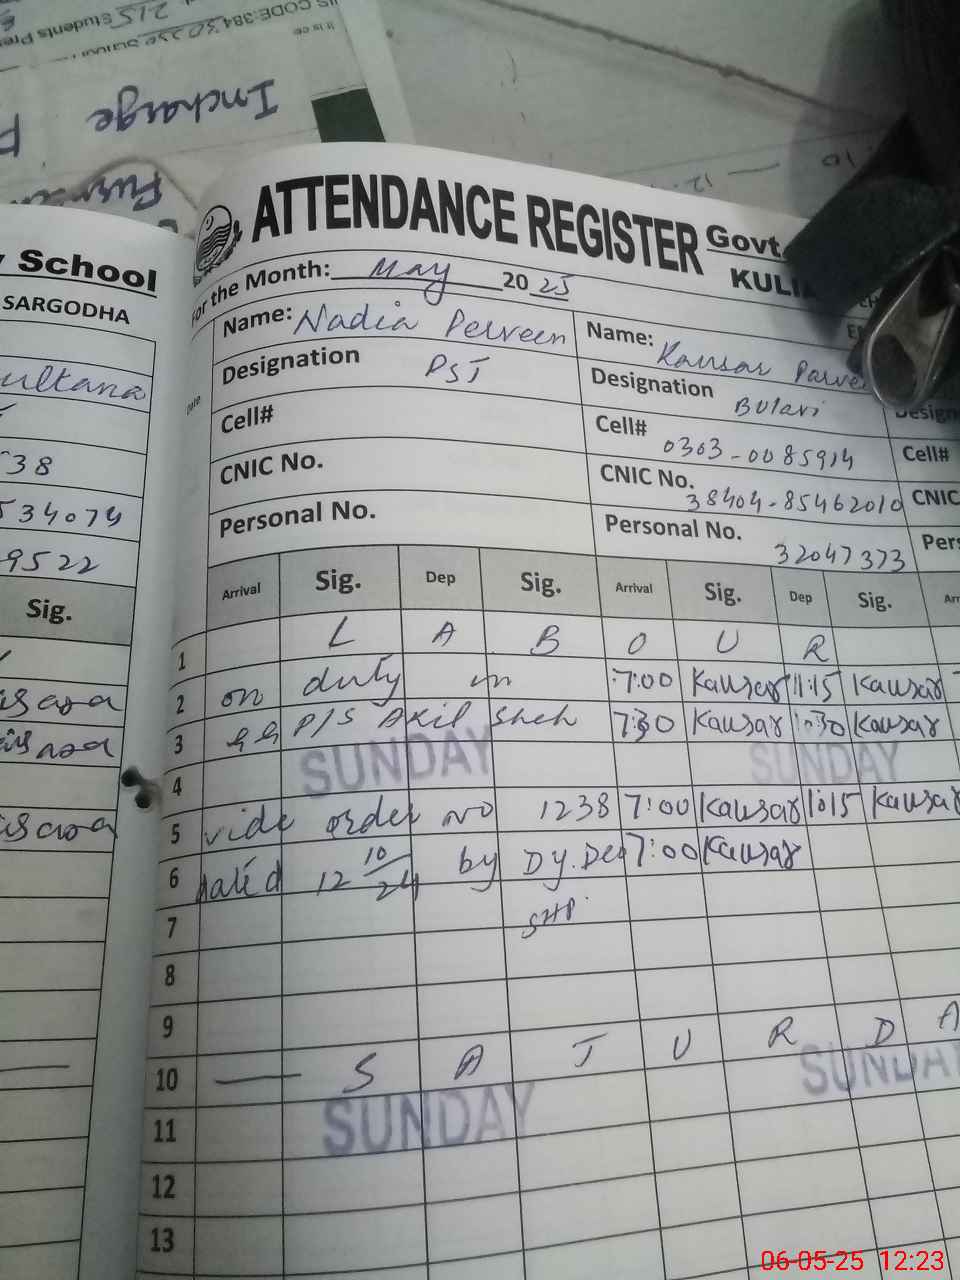 IS CODE:384
215 Students Pre
Incharge
ATTENDANCE REGISTER Govt.
KULI
For the Month: May 2025
y School
SARGODHA
ultana
38
534074
9522
Sig.
Date
Name: Nadia Perveen
Designation PST
Cell#
CNIC No.
Personal No.
Name: Kausar Parve
Designation Bulavi
Cell# 0303-0085914
CNIC No. 38404-85462010
Personal No. 32047373
Design
Cell#
CNIC
Pers
Arrival Sig. Dep Sig. Arrival Sig. Dep Sig. Arr
1 L A B O U R
2 on duty in 7:00 Kausar 11:15 Kausar
3 P/S Akil Shah 7:30 Kausar 10:30 Kausar
4 SUNDAY SUNDAY
5 vide order no 1238 7:00 Kausar 1:15 Kausar
6 dated 12 10/24 by Dy.Deo 7:00 Kausar
7 SHP
8
9
10 S A T U R D A
11 SUNDAY SUNDAY
12
13
06-05-25 12:23